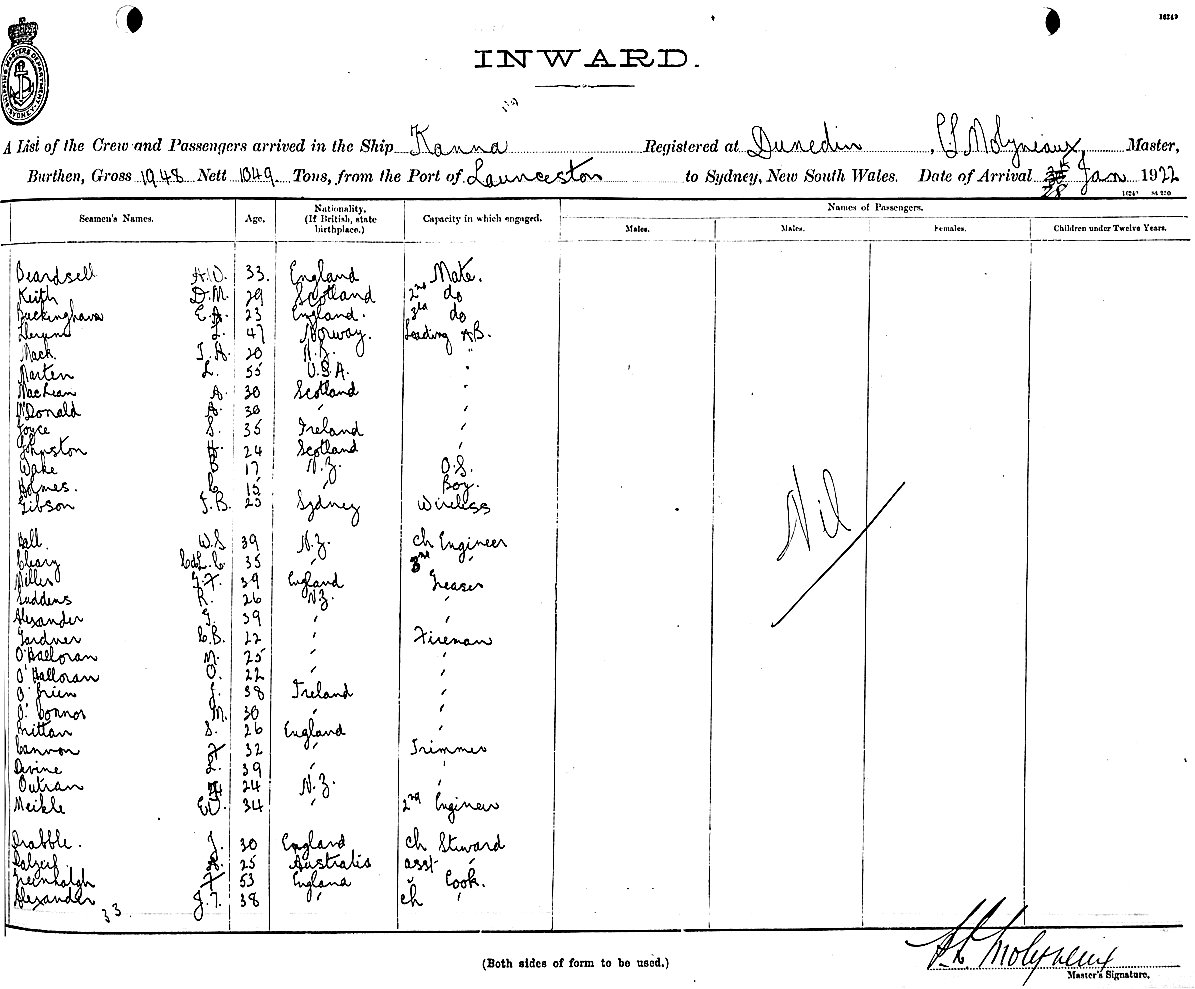 16249
SHIPPING MASTERS DEPARTMENT SYDNEY
INWARD.
A List of the Crew and Passengers arrived in the Ship Kanna Registered at Dunedin, Molyneaux, Master,
Burthen, Gross 1948 Nett 1049 Tons, from the Port of Launceston to Sydney, New South Wales. Date of Arrival 28 Jan 1922
Seamen's Names. Age. Nationality. (If British, state birthplace.) Capacity in which engaged. Names of Passengers.
Males. Males. Females. Children under Twelve Years.
Beardsell A.D. 33. England Mate.
Keith D.M. 29 Scotland 2nd do
Buckingham E. A. 23 England. 3rd do
L. 47 Norway. Leading A.B.
Mack J. A. 20 N.Z. "
Marten L. 55 U.S.A. "
MacLean A. 30 Scotland "
McDonald A. 30 " "
Joyce S. 35 Ireland "
Johnston H. 24 Scotland "
Wake B 17 N.Z. O.S.
Holmes. C 15 " Boy.
Gibson J.B. 25 Sydney Wireless
Nil
Ball W.S 39 N.Z. Ch Engineer
Cleary 35 " 3rd "
Miller J.F. 39 England Greaser
Suddens R. 26 N.Z. "
Alexander J. 39 " "
Gardner C.B. 22 " Fireman
O'Halloran M. 25 " "
O'Halloran O. 22 " "
O'Brien J. 38 Ireland "
O'Connor M. 30 " "
Brittan S. 26 England "
Cannon F 32 " Trimmer
Devine L. 39 " "
Outram H 24 N.Z. "
Meikle E.D. 34 " 2nd Engineer
Drabble. J. 30 England Ch Steward
Dalzell A. 25 Australia asst "
Greenhalgh F 53 England Cook.
Alexander J.T. 38 " Ch "
33
Molyneux
(Both sides of form to be used.)
Master's Signature.